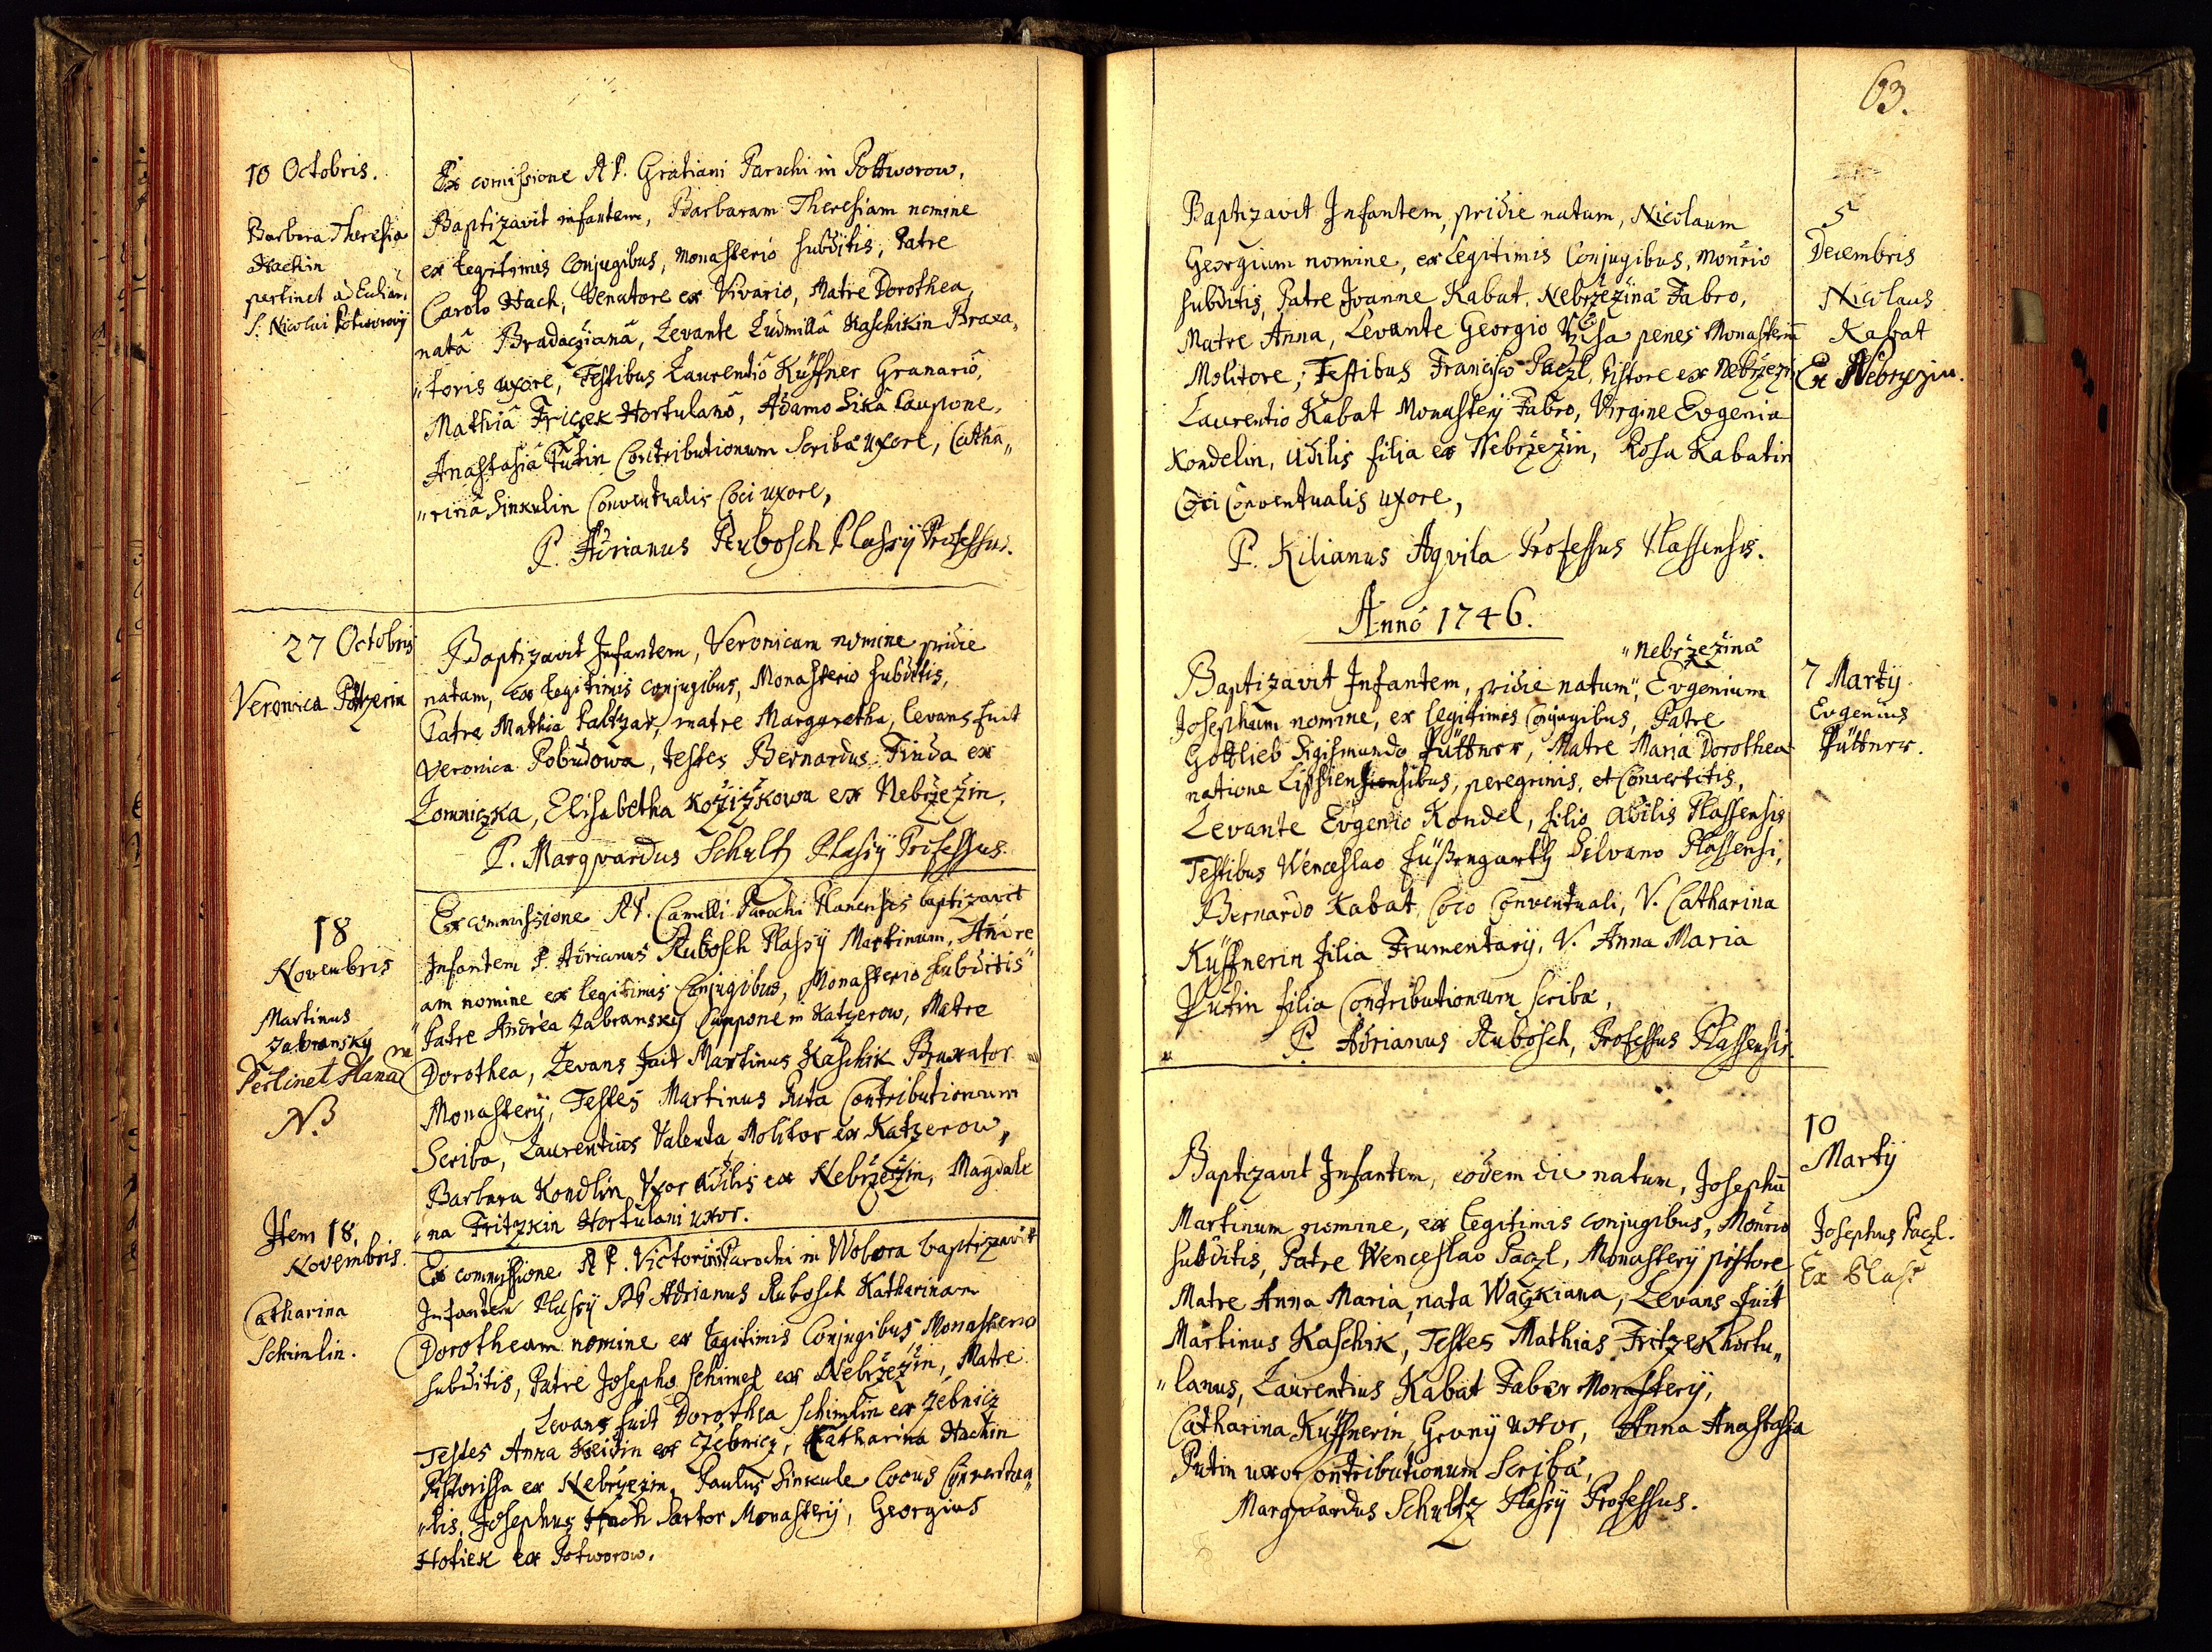 10 Octobris.
Barbara Theresia
Hackin
pertinct ad Eccliam
S. Nicolai Potworovij
Ex comissione RP. Gratiani Parochi in Pottworow,
Baptizavit infantem, Barbaram Theresiam nomine
ex legitimis Conjugibus, Monasterio subditis, Patre
Carolo Hack, Venatore ex Vivario, Matre Dorothea,
nata Bradacziana, Levante Ludmilla Kaschikin Braxa„
„toris uxore, Testibus Laurentio Küffner Granario,
Mathia Friczek Hortulano, Adamo Sika Caupone,
Anastasia Putin Contributionum Scribæ uxore, Catha„
„rina Sinkulin Conventualis Coci uxore,
P. Adrianus Rubosch Plassÿ Professus.
27 Octobris
Veronica Paltzerin
Baptizavit Infantem, Veronicam nomine pridie
natam, ex legitimis conjugibus, Monasterio subditis,
Patre Mathia Paltzar, matre Margaretha, levans fuit
Veronica Pobudowa, testes Bernardus Finda ex
Lomniczka, Elisabetha Kožižkowa ex Nebržežin,
P. Marqvardus Schultz Plassÿ Professus.
18
Novembris
Martinus
Zabransky
Pertinet Planam
NB
Ex commissione RP. Camilli Parochi Planensis baptizavit
Infantem P. Adrianus Rubosch Plassÿ Martinum, Andre
am nomine ex legitimis Conjugibus, Monasterio subditis
Patre Andrea Zabransky Caupone in Katzerow, Matre
Dorothea, Levans fuit Martinus Kaschik Braxator
Monasterÿ, Testes Martinus Puta Contributionum
Scriba, Laurentius Valenta Molitor ex Katzerow,
Barbara Kondlin Uxor ædilis ex Nebržežin, Magdale
„na Fritzkin Hortulani uxor.
Item 18.
Novembris.
Catharina
Schimlin.
Ex commissione RP. Victorini Parochi in Wobora baptizavit
Infantem Plassÿ RP Adrianus Rubosch Katharinam
Dorotheam nomine ex legitimis Conjugibus Monasterio
subditis, Patre Josepho Schimel ex Nebržežin, Matre
Levans fuit Dorothea Schimlin ex Zebnicz
Testes Anna Heidin ex Zebnicz, Katharina Hackin
Pistorissa ex Nebrzezin, Paulus Sinkule Cocus Conventua„
„lis, Josephus Hach Sartor Monasterÿ, Georgius
Hotiek ex Potworow.
63.
Baptizavit Infantem, pridie natum, Nicolaum
Georgium nomine, ex legitimis Conjugibus, Monrio
subditis, Patre Joanne Kabat, Nebržežinâ Fabro,
Matre Anna, Levante Georgio penes Monasterium
Molitore, Testibus Francisco Paczl, Pistore ex Nebržezin
Laurentio Kabat Monasterÿ Fabro, Virgine Evgenia
Kondelin, ædilis filia ex Nebržežin, Rosa Kabatin
Coci Conventualis uxore,
P. Kilianus Aqvila Professus Plassensis.
5
Decembris
Nicolaus
Kabat
Ex Nebrzezin.
Anno 1746.
„Nebržezinâ
Baptizavit Infantem, pridie natum„, Evgenium
Josephum nomine, ex legitimis Conjugibus, Patre
Gottlieb Sigismundo Püttner, Matre Maria Dorothea
natione Lipsiensibus, peregrinis, et Convertitis,
Levante Evgenio Kondel, filio ædilis Plassensis
Testibus Wenceslao Füßengarth Silvano Plassensi,
Bernardo Kabat, Coco Conventuali, V. Catharina
Küffnerin filia Frumentarÿ, V. Anna Maria
Putin filia Contributionum Scribæ,
P. Adrianus Rubosch, Professus Plassensis.
7 Martÿ
Evgenius
Püttner.
Baptizavit Infantem, eodem die natum, Josephum
Martinum nomine, ex legitimis conjugibus, Monrio
subditis, Patre Wenceslao Paczl, Monasterÿ pistore
Matre Anna Maria, nata Waczkiana, Levans fuit
Martinus Kaschik, Testes Mathias Fritzek hortu„
„lanus, Laurentius Kabat Faber Monasterÿ,
Catharina Küffnerin, Granÿ uxor, Anna Anastasia
Putin uxor Contributionum Scribæ,
Marqvardus Schultz Plassÿ Professus.
10
Martÿ
Josephus Paczl.
Ex Plass